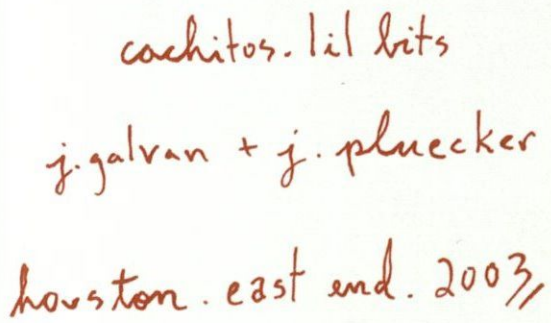 cachitos. lil bits
j. galvan + j. pluecker
houston. east end. 2003,